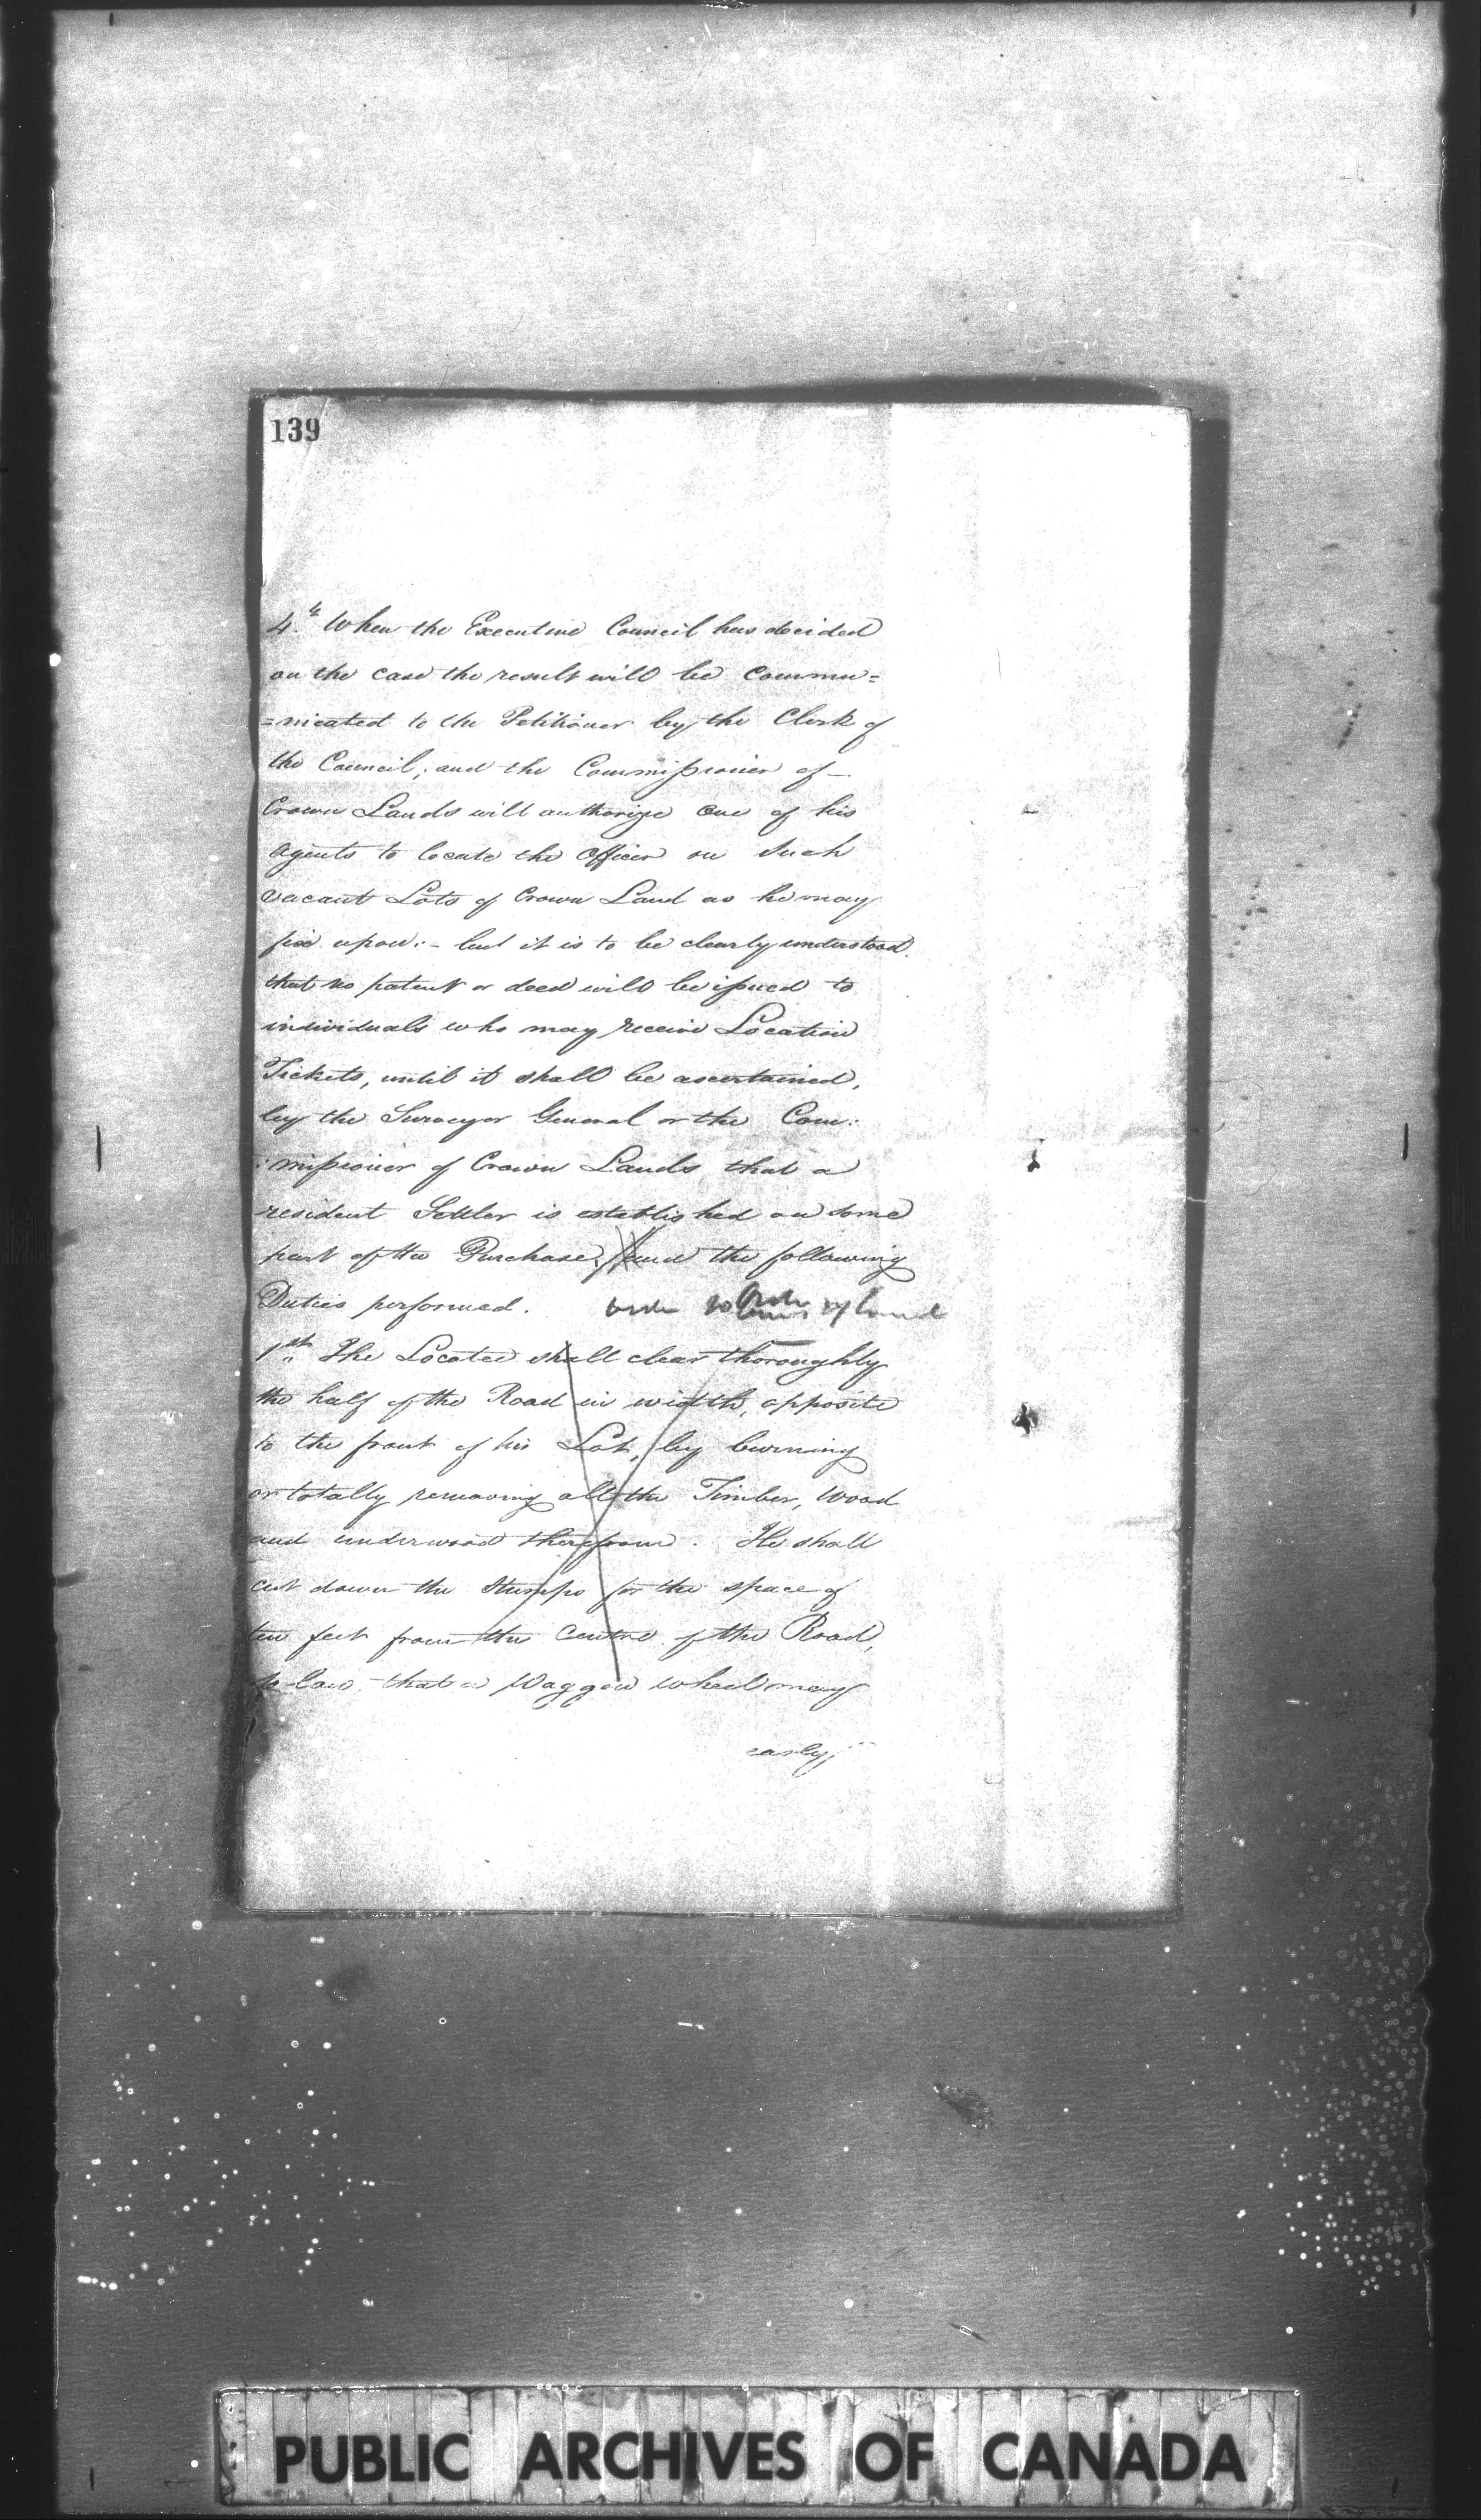 139
4.th When the Executive Council has decided
on the case the result will be commu=
=nicated to the Petitioner by the Clerk of
the Council; and the Commissioner of
Crown Lands will authorize one of his
agents to locate the Officer on such
vacant Lots of Crown Land as he may
fix upon:- but it is to be clearly understood
that no patent or deed will be issued to
individuals who may receive Location
Tickets, until it shall be ascertained,
by the Surveyor General or the Com:
:missioner of Crown Lands that a
resident Settler is established on some
part of the Purchase, and the following
Duties performed. of
1st The Locatee shall clear thoroughly
the half of the Road in width, opposite
to the front of his Lot, by burning
or totally removing all the Timber, Wood
and underwood therefrom. He shall
cut down the Stumps for the space of
ten feet from the Centre of the Road,
so low that a Waggon wheel may
easly
PUBLIC ARCHIVES OF CANADA